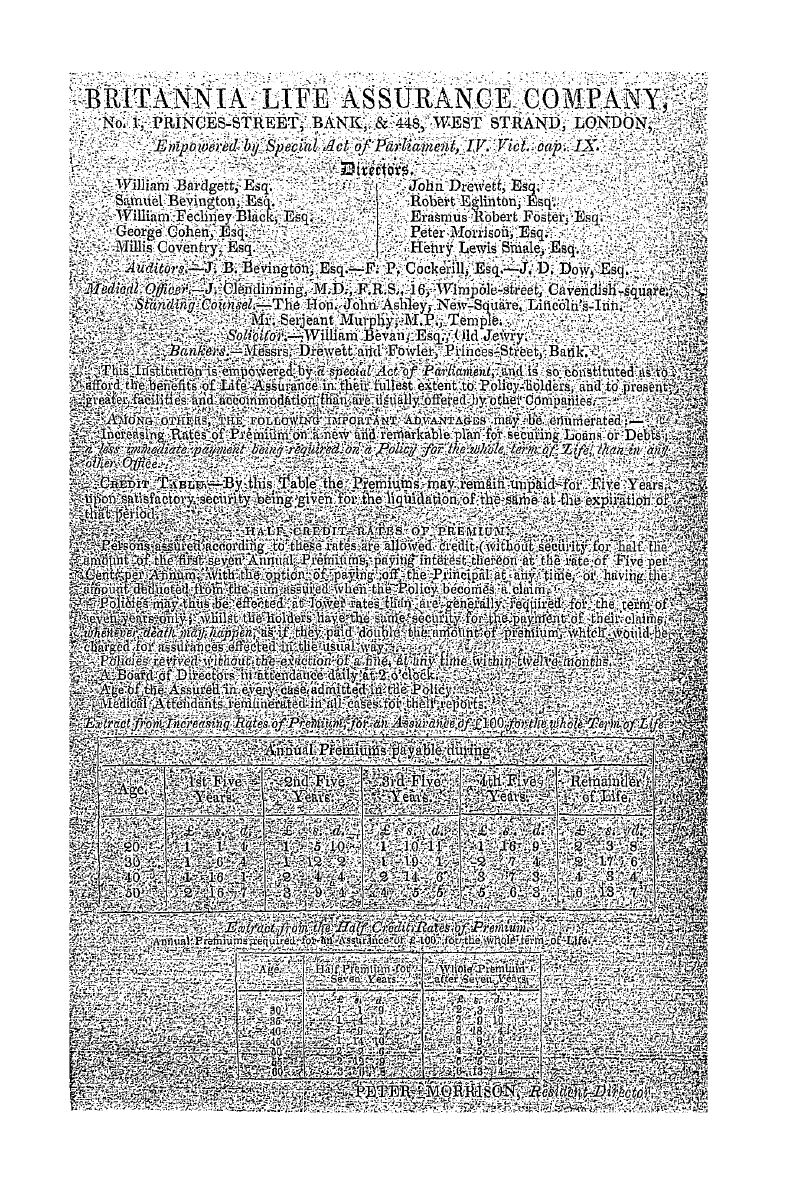 BRITANNIA LIFE ASSURANCE COMPANY,
No. 1, PRINCES-STREET, BANK, & 448, WEST STRAND, LONDON,
Empowered by Special Act of Parliament, IV. Vict. cap. IX.
Directors.
William Bardgett, Esq.
Samuel Bevington, Esq.
William Fechney Black, Esq.
George Cohen, Esq.
Millis Coventry, Esq.
John Drewett, Esq.
Robert Eglinton, Esq.
Erasmus Robert Foster, Esq.
Peter Morrison, Esq.
Henry Lewis Smale, Esq.
Auditors.—J. B. Bevington, Esq.—F. P. Cockerill, Esq.—J. D. Dow, Esq.
Medical Officer.—J. Clendinning, M.D., F.R.S., 16, Wimpole-street, Cavendish-square.
Standing Counsel.—The Hon. John Ashley, New-Square, Lincoln's-Inn.
Mr. Serjeant Murphy, M.P., Temple.
Solicitor.—William Bevan, Esq., Old Jewry.
Bankers.—Messrs. Drewett and Fowler, Princes-Street, Bank.
This Institution is empowered by a special Act of Parliament, and is so constituted as to
afford the benefits of Life Assurance in their fullest extent to Policy-holders, and to present
greater facilities and accommodation than are usually offered by other Companies.
AMONG OTHERS, THE FOLLOWING IMPORTANT ADVANTAGES may be enumerated:—
Increasing Rates of Premium on a new and remarkable plan for securing Loans or Debts;
a less immediate payment being required on a Policy for the whole term of Life than in any
other Office.
CREDIT TABLE.—By this Table the Premiums may remain unpaid for Five Years,
upon satisfactory security being given for the liquidation of the same at the expiration of
that period.
HALF CREDIT RATES OF PREMIUM.
Persons assured according to these rates are allowed credit (without security) for half the
amount of the first seven Annual Premiums, paying interest thereon at the rate of Five per
Cent. per Annum, with the option of paying off the Principal at any time, or having the
amount deducted from the sum assured when the Policy becomes a claim.
Policies may thus be effected at lower rates than are generally required for the term of
seven years only; whilst the holders have the same security for the payment of their claims,
whenever death may happen, as if they paid double the amount of premium, which would be
charged for assurances effected in the usual way.
Policies revived without the exaction of a fine, at any time within twelve months.
A Board of Directors in attendance daily at 2 o'clock.
Age of the Assured in every case admitted in the Policy.
Medical Attendants remunerated in all cases for their reports.
Extract from Increasing Rates of Premium, for an Assurance of £100, for the whole Term of Life.
Annual Premiums payable during
Age. 1st Five Years. 2nd Five Years. 3rd Five Years. 4th Five Years. Remainder of Life.
£ s. d. £ s. d. £ s. d. £ s. d. £ s. d.
20 1 1 4 1 5 10 1 10 11 1 16 9 2 3 8
30 1 6 4 1 12 2 1 19 1 2 7 4 2 17 6
40 1 16 1 2 4 4 2 14 6 3 7 3 4 3 4
50 2 16 7 3 9 4 4 5 5 5 6 3 6 13 7
Extract from the Half Credit Rates of Premium.
Annual Premiums required for an Assurance of £100, for the whole term of Life.
Age. Half Premium for Seven Years. Whole Premium after Seven Years.
£ s. d. £ s. d.
30 1 1 9 2 3 6
35 1 4 11 2 9 10
40 1 9 2 2 18 4
45 1 14 10 3 9 8
50 2 2 6 4 5 0
PETER MORRISON, Resident Director.